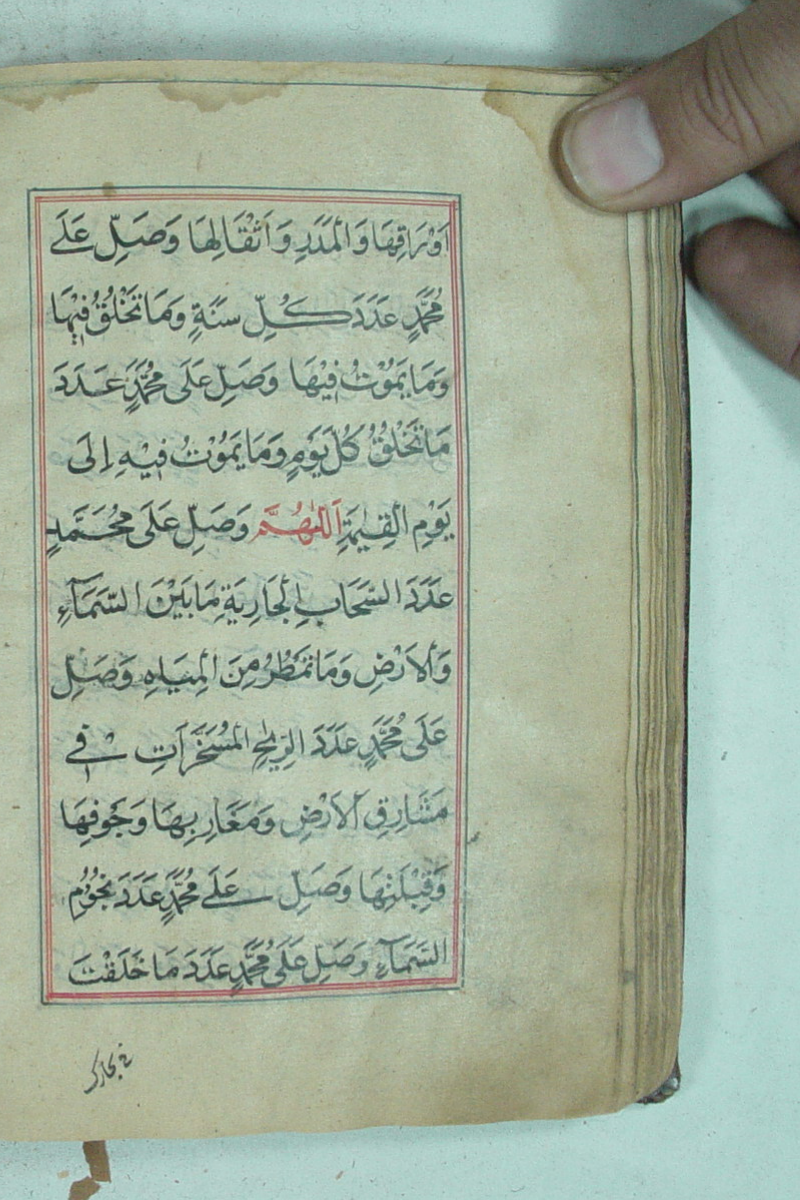 اَوْرَاقِهَا وَالْمَدَرِ وَاَثْقَالِهَا وَصَلِّ عَلَے
مُحَمَّدٍ عَدَدَ كُلِّ سَنَةٍ وَمَا تَخْلُقُ فِيْهَا
وَمَا يَمُوْتُ فِيْهَا وَصَلِّ عَلَى مُحَمَّدٍ عَدَدَ
مَا تَخْلُقُ كُلَّ يَوْمٍ وَمَا يَمُوْتُ فِيْهِ اِلَى
يَوْمِ الْقِيٰمَةِ اَللّٰهُمَّ وَصَلِّ عَلَى مُحَمَّدٍ
عَدَدَ السَّحَابِ الْجَارِيَةِ مَا بَيْنَ السَّمَآءِ
وَالْاَرْضِ وَمَا تَمْطُرُ مِنَ الْمِيَاهِ وَصَلِّ
عَلَى مُحَمَّدٍ عَدَدَ الرِّيٰحِ الْمُسَخَّرَاتِ فِے
مَشَارِقِ الْاَرْضِ وَمَغَارِبِهَا وَجَوْفِهَا
وَقِبْلَتِهَا وَصَلِّ عَلَے مُحَمَّدٍ عَدَدَ نُجُوْمِ
السَّمَآءِ وَصَلِّ عَلَى مُحَمَّدٍ عَدَدَ مَا خَلَقْتَ
فى بحارك